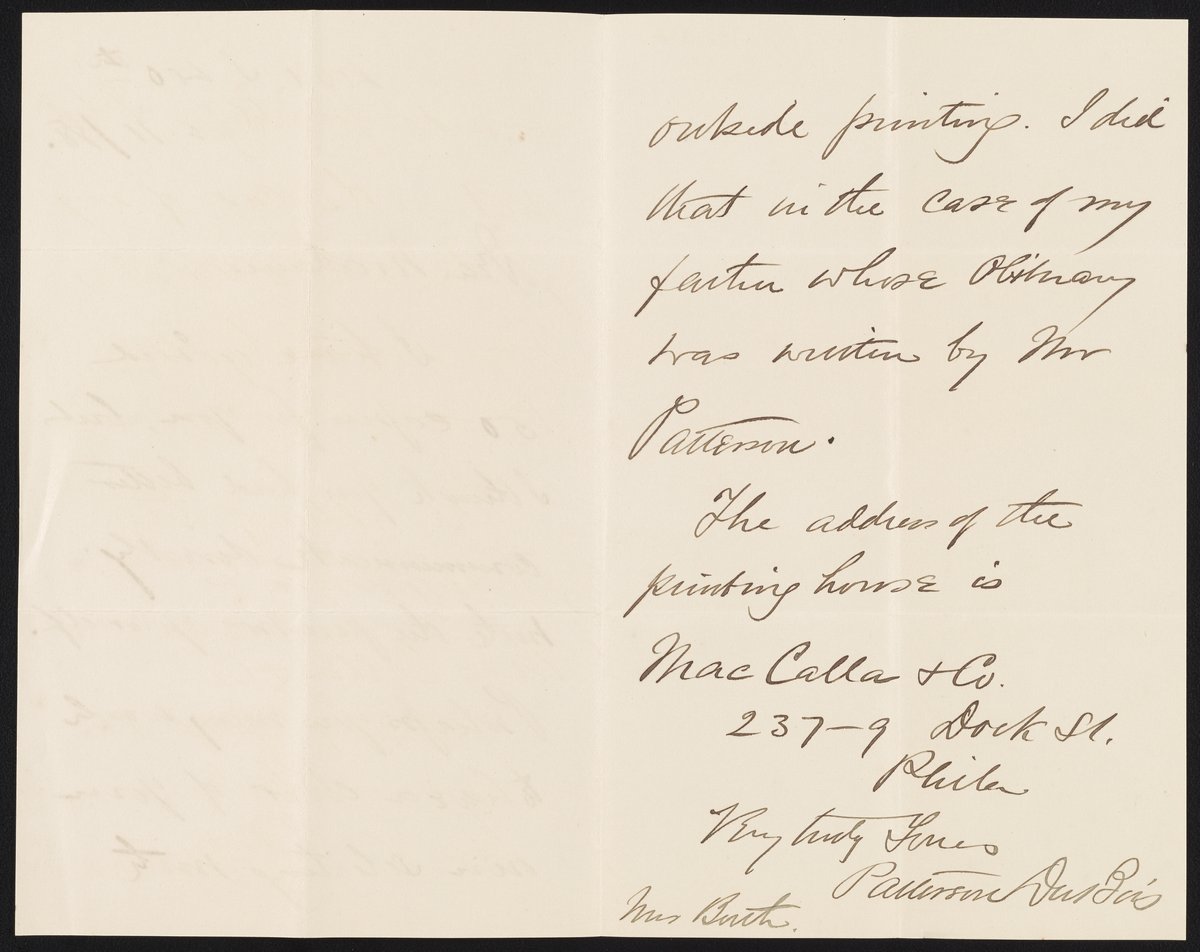 outside printing. I did
that in the case of my
father whose Obituary
was written by Mr
Patterson.
The address of the
printing house is
MacCalla & Co.
237-9 Dock St.
Phila
Very truly Yours
Patterson DuBois
Mrs Booth.